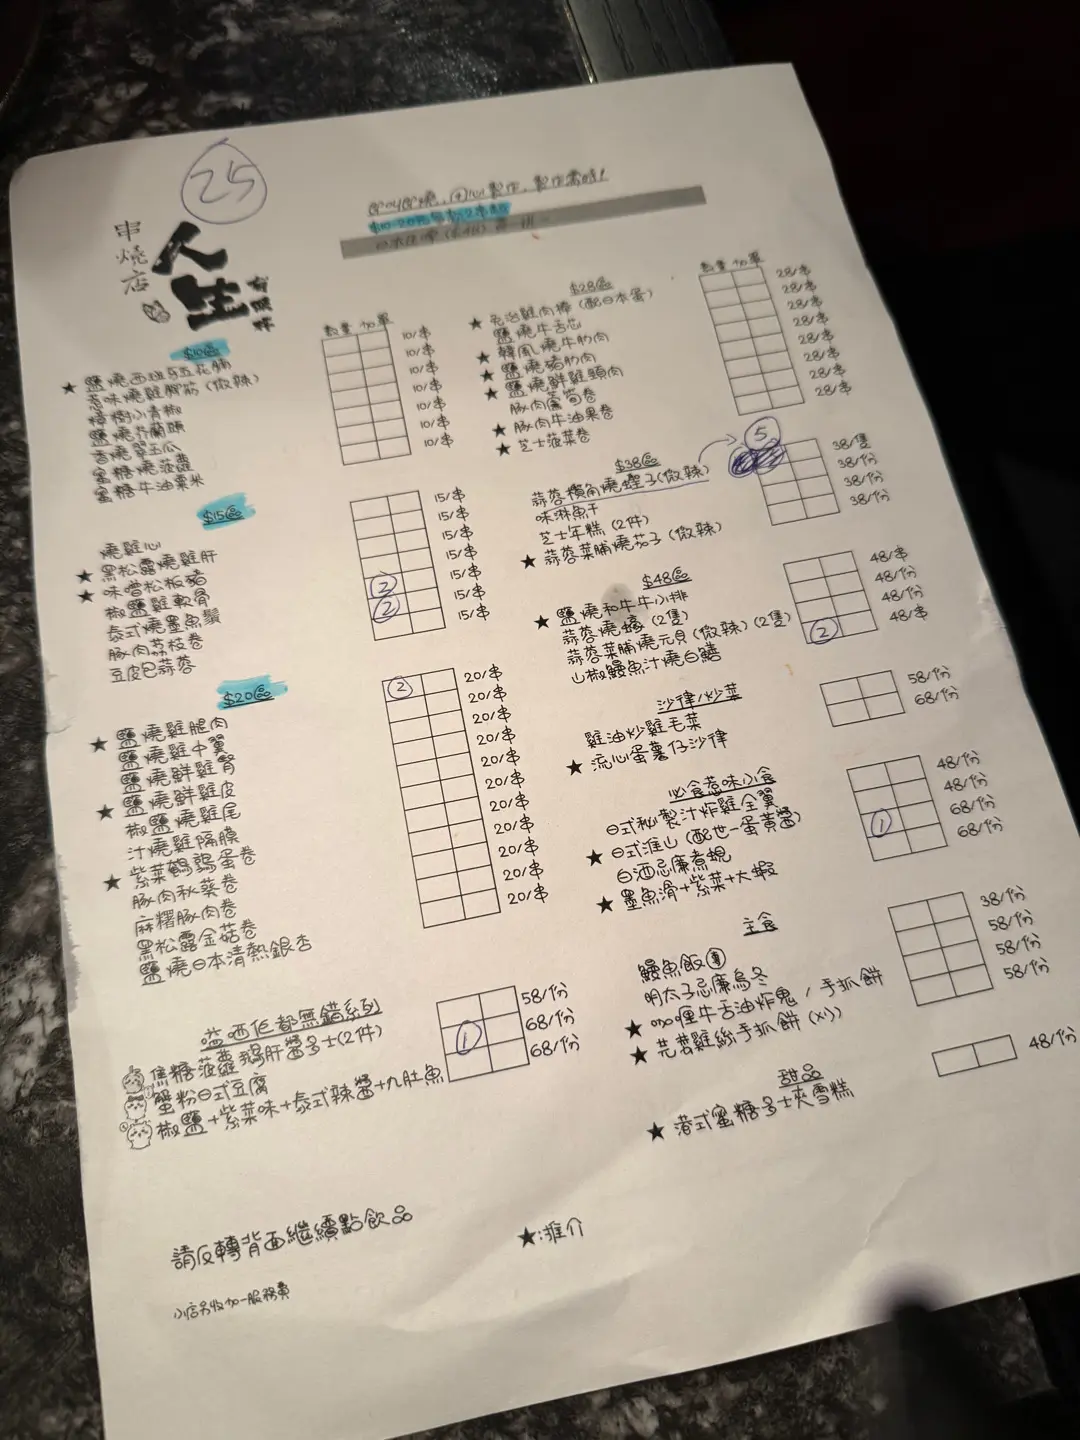 25
串燒店
人生
有啖味
即叫即燒, 用心製作, 製作需時!
$10-20區每款2串起
數量 加單
$10區
★ 鹽燒西班牙五花腩 10/串
惹味燒雞脾筋 (微辣) 10/串
椿樹小青椒 10/串
鹽燒芥蘭頭 10/串
香燒翠玉瓜 10/串
蜜糖燒菠蘿 10/串
蜜糖牛油粟米 10/串
$15區
燒雞心 15/串
★ 黑松露燒雞肝 15/串
★ 味噌松板豬 15/串
椒鹽雞軟骨 15/串
泰式燒墨魚鬚 2 15/串
豚肉荔枝卷 2 15/串
豆皮包蒜蓉 15/串
$20區
★ 鹽燒雞腿肉 2 20/串
鹽燒雞中翼 20/串
鹽燒鮮雞腎 20/串
★ 鹽燒鮮雞皮 20/串
椒鹽燒雞尾 20/串
汁燒雞隔膜 20/串
★ 紫菜鵪鶉蛋卷 20/串
豚肉秋葵卷 20/串
麻糬豚肉卷 20/串
黑松露金菇卷 20/串
鹽燒日本清熱銀杏 20/串
嗌哂佢都無錯系列
焦糖菠蘿鵝肝醬多士(2件) 58/份
蟹粉日式豆腐 1 68/份
椒鹽+紫菜味+泰式辣醬+九肚魚 68/份
數量 加單
$28區
★ 免治雞肉棒 (配日本蛋) 28/串
鹽燒牛舌芯 28/串
★ 韓風燒牛肋肉 28/串
★ 鹽燒豬肋肉 28/串
★ 鹽燒鮮雞頸肉 28/串
豚肉蘆筍卷 28/串
★ 豚肉牛油果卷 28/串
★ 芝士菠菜卷 28/串
$38區
蒜蓉欖角燒蟶子(微辣) 5 38/隻
味淋魚干 38/份
芝士年糕 (2件) 38/份
★ 蒜蓉菜脯燒茄子 (微辣) 38/份
$48區
★ 鹽燒和牛牛小排 48/串
蒜蓉燒蠔 (2隻) 48/份
蒜蓉菜脯燒元貝 (微辣) (2隻) 48/份
山椒鰻魚汁燒白鱔 2 48/串
沙律/炒菜
雞油炒雞毛菜 58/份
★ 流心蛋薯仔沙律 68/份
必食惹味小食
日式秘製汁炸雞全翼 48/份
★ 日式淮山 (配世一蛋黃醬) 48/份
白酒忌廉煮蜆 68/份
★ 墨魚滑+紫菜+大蝦 1 68/份
主食
鰻魚飯 38/份
明太子忌廉烏冬 58/份
★ 咖喱牛舌油炸鬼 / 手抓餅 58/份
★ 芫荽雞絲手抓餅 (凍) 58/份
甜品
★ 港式蜜糖多士夾雪糕 48/份
請反轉背面繼續點飲品
★:推介
小店另收加一服務費